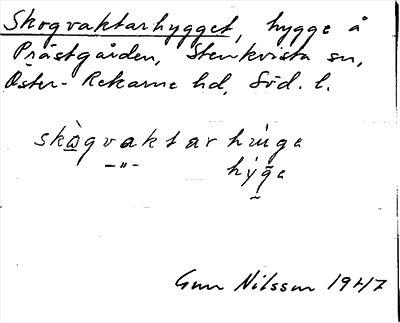 Skogvaktarhygget, hygge å
Prästgården, Stenkvista sn,
Öster-Rekarne hd, Söd. l.
skògvaktarhu̇ga
–"–
hẏga
Gun Nilsson 1947